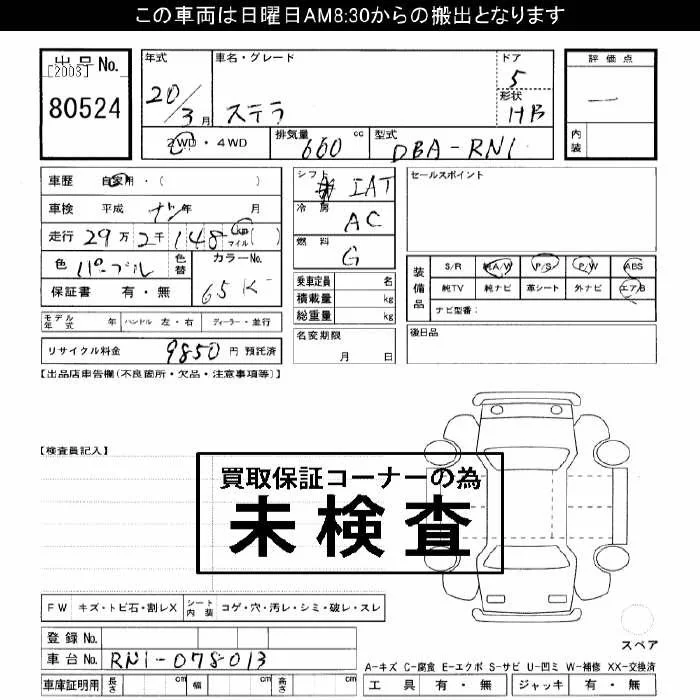 この車両は日曜日AM8:30からの搬出となります
出品No.
[2003]
80524
年式
20/3月
車名・グレード
ステラ
ドア
5
形状
HB
評価点
—
内装
2WD・4WD
排気量 660 cc
型式 DBA-RN1
車歴 自家用・( )
車検 平成 ナシ年 月
走行 29万2千148 km マイル ( )
色 パープル
色替
カラーNo.
65K
保証書 有・無
シフト IAT
冷房 AC
燃料 G
乗車定員 名
積載量 kg
総重量 kg
セールスポイント
装備品
S/R 純A/W P/S P/W ABS
純TV 純ナビ 革シート 外ナビ エアB
ナビ型番:
モデル年式 年 ハンドル 左・右 ディーラー・並行
リサイクル料金 9850 円 預託済
名変期限
月 日
後日品
【出品店車告欄(不良箇所・欠品・注意事項等)】
【検査員記入】
買取保証コーナーの為
未検査
FW キズ・トビ石・割レX シート内装 コゲ・穴・汚レ・シミ・破レ・スレ
登録No.
車台No. RN1-078013
車庫証明用 長さ cm 幅 cm 高さ cm
スペア
A-キズ C-腐食 E-エクボ S-サビ U-凹ミ W-補修 XX-交換済
工具 有・無 ジャッキ 有・無